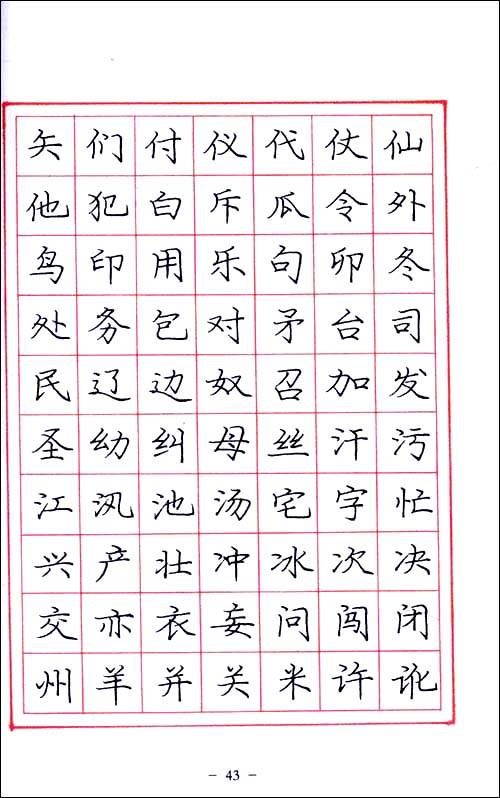 矢们付仪代仗仙
他犯白斥瓜令外
鸟印用乐句卯冬
处务包对矛台司
民辽边奴召加发
圣幼纠母丝汗污
江汛池汤宅字忙
兴产壮冲冰次决
交亦衣妄问闯闭
州羊并关米许讹
- 43 -